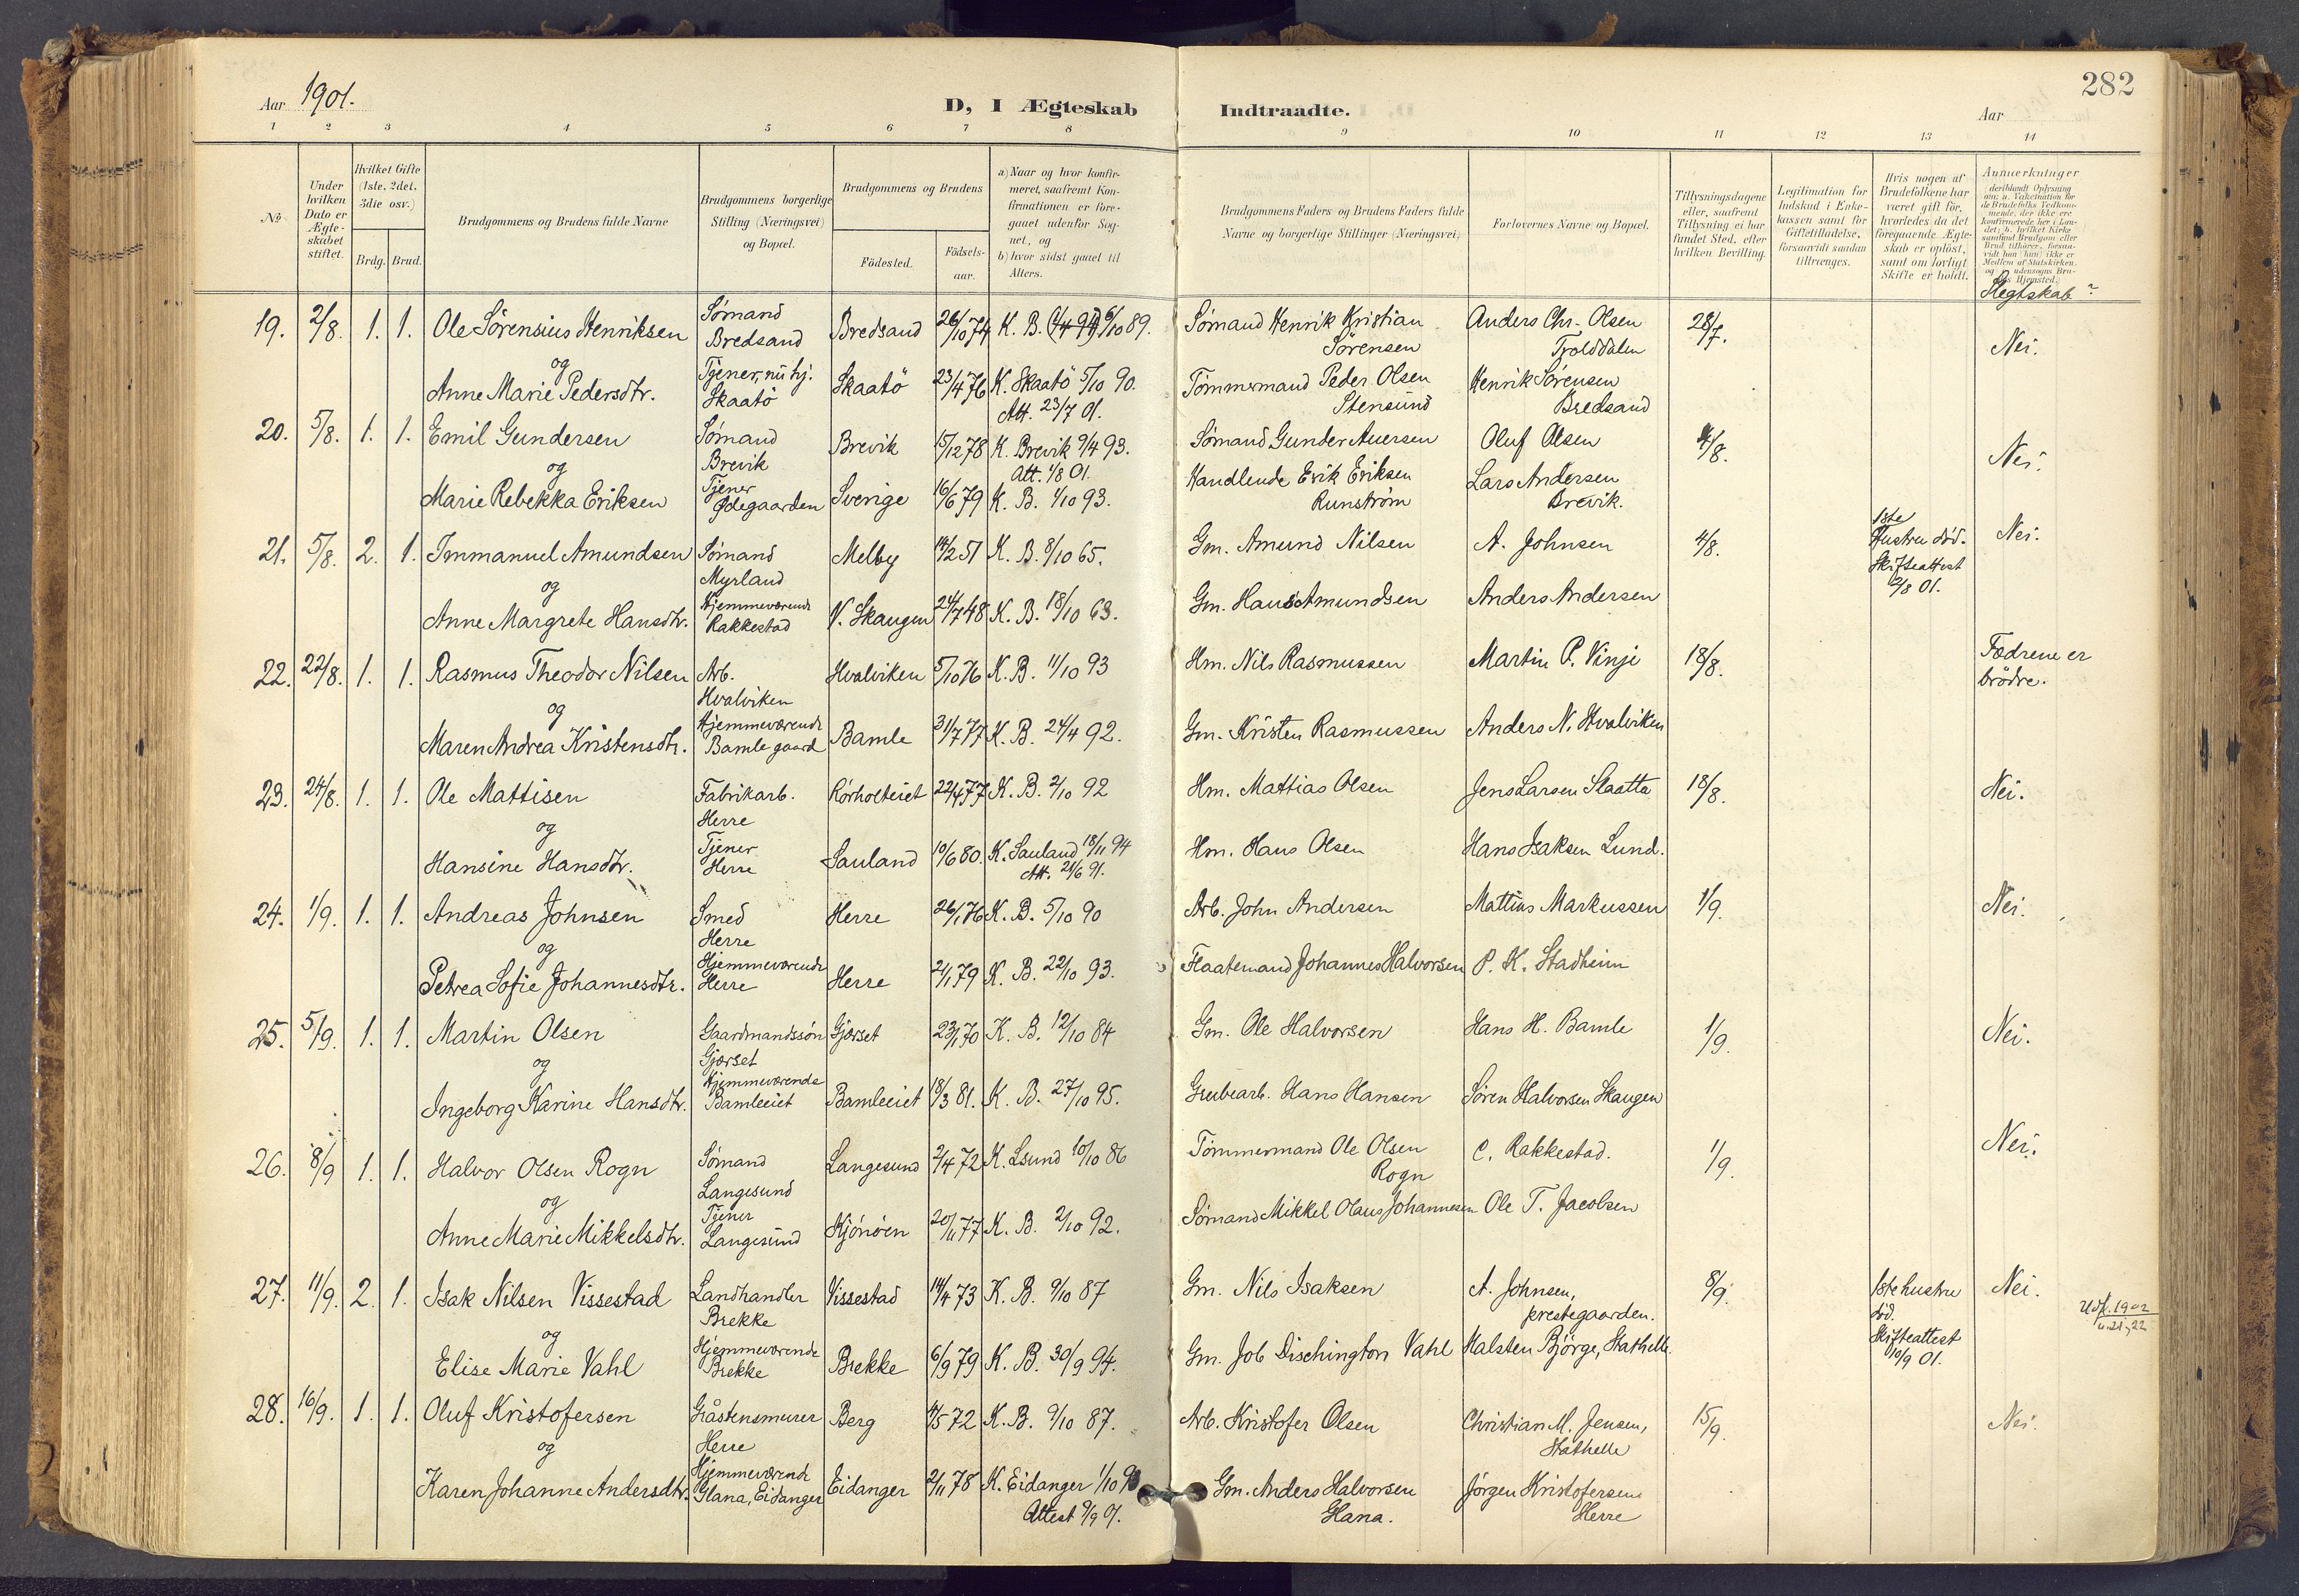 282
Aar 1901.
D, I Ægteskab Indtraadte.
Aar
1 2 3 4 5 6 7 8 9 10 11 12 13 14
No
Under hvilken Dato er Ægteskabet stiftet.
Hvilket Gifte (1ste, 2det, 3die osv.)
Brdg. Brud.
Brudgommens og Brudens fulde Navne
Brudgommens borgerlige Stilling (Næringsvei) og Bopæl.
Brudgommens og Brudens
Fødested.
Fødselsaar.
a) Naar og hvor konfirmeret, saafremt Konfirmationen er foregaaet udenfor Sognet, og
b) hvor sidst gaaet til Alters.
Brudgommens Faders og Brudens Faders fulde Navne og borgerlige Stillinger (Næringsvei)
Forlovernes Navne og Bopæl.
Tillysningsdagene eller, saafremt Tillysning ei har fundet Sted, efter hvilken Bevilling.
Legitimation for Indskud i Enkekassen samt for Giftetilladelse, forsaavidt saadan tiltrænges.
Hvis nogen af Brudefolkene har været gift før, hvorledes da det foregaaende Ægteskab er opløst, samt om lovligt Skifte er holdt.
Anmærkninger
Slegtskab?
19. 2/8. 1. 1. Ole Sörensius Henriksen Sömand Bredsand Bredsand 26/10 74 K. B. 6/10 89. Sömand Henrik Kristian Sörensen Anders Chr. Olsen Trolddalen 28/7. Nei.
og
Anne Marie Pedersdtr. Tjener, nu hj. Skaatö Skaatö 23/4 76 K. Skaatö 5/10 90. Att. 23/7 01. Tömmermand Peder Olsen Stensund Henrik Sörensen Bredsand
20. 5/8. 1. 1. Emil Gundersen Sömand Brevik Brevik 15/12 78 K. Brevik 9/4 93. Att. 1/8 01. Sömand Gunder Auersen Oluf Olsen 4/8. Nei.
og
Marie Rebekka Eriksen Tjener Ødegaarden Sverige 16/6 79 K. B. 1/10 93. Handlende Erik Eriksen Runström Lars Andersen Brevik.
21. 5/8. 2. 1. Immanuel Amundsen Sömand Myrland Melby 14/2 51 K. B. 8/10 65. Gm. Amund Nilsen A. Johnsen 4/8. 1ste Hustru död. Skifteattest 2/8 01. Nei.
og
Anne Margrete Hansdtr. Hjemmeværende Rakkestad V. Skaugen 24/7 48 K. B. 18/10 63. Gm. Hans Amundsen Anders Andersen
22. 22/8. 1. 1. Rasmus Theodor Nilsen Arb. Hvalviken Hvalviken 5/10 76 K. B. 11/10 93 Hm. Nils Rasmussen Martin P. Vinje 18/8. Fædrene er brödre.
og
Maren Andrea Kristensdtr. Hjemmeværende Bamle gaard Bamle 31/7 77 K. B. 24/4 92. Gm. Kristen Rasmussen Anders N. Hvalviken
23. 24/8. 1. 1. Ole Mattisen Fabrikarb. Herre Rörholteiet 22/4 77 K. B. 2/10 92 Hm. Mattias Olsen Jens Larsen Slaatta 18/8. Nei.
og
Hansine Hansdtr. Tjener Herre Sauland 10/6 80. K. Sauland 18/11 94 Att. 21/6 91. Hm. Hans Olsen Hans Isaksen Lund.
24. 1/9. 1. 1. Andreas Johnsen Smed Herre Herre 26/1 76 K. B. 5/10 90 Arb. John Andersen Mattias Markussen 1/9. Nei.
og
Petrea Sofie Johannesdtr. Hjemmeværende Herre Herre 2/1 79 K. B. 22/10 93. Flaatemand Johannes Halvorsen P. K. Stadheim
25. 5/9. 1. 1. Martin Olsen Gaardmandssön Gjerset Gjerset 23/1 70 K. B. 12/10 84 Gm. Ole Halvorsen Hans H. Bamle 1/9. Nei.
og
Ingeborg Karine Hansdtr. Hjemmeværende Bamleeiet Bamleeiet 18/3 81. K. B. 27/10 95. Grubearb. Hans Hansen Sören Halvorsen Skaugen
26. 8/9 1. 1. Halvor Olsen Rogn Sömand Langesund Langesund 2/4 72 K. Lsund 10/10 86 Tömmermand Ole Olsen Rogn C. Rakkestad. 1/9. Nei.
og
Anne Marie Mikkelsdtr. Tjener Langesund Kjönöen 20/11 77 K. B. 2/10 92. Sömand Mikkel Olaus Johannesen Ole T. Jacobsen
27. 11/9. 2. 1. Isak Nilsen Vissestad Landhandler Brekke Vissestad 14/4 73 K. B. 9/10 87 Gm. Nils Isaksen A. Johnsen, prestegaarden. 8/9. 1ste hustru död. Skifteattest 10/9 01. Nei. Udf. 1902
og
Elise Marie Vahl Hjemmeværende Brekke Brekke 6/9 79 K. B. 30/9 94. Gm. Job Dischington Vahl Halsten Björge, Stathelle
28. 16/9. 1. 1. Oluf Kristofersen Gråstensmurer Herre Berg 4/5 72 K. B. 9/10 87. Arb. Kristofer Olsen Christian M. Jensen, Stathelle 15/9. Nei.
og
Karen Johanne Andersdtr. Hjemmeværende Glana, Eidanger Eidanger 2/11 78 K. Eidanger 1/10 Attest 9/9 01. Gm. Anders Halvorsen Glana. Jörgen Kristofersen Herre